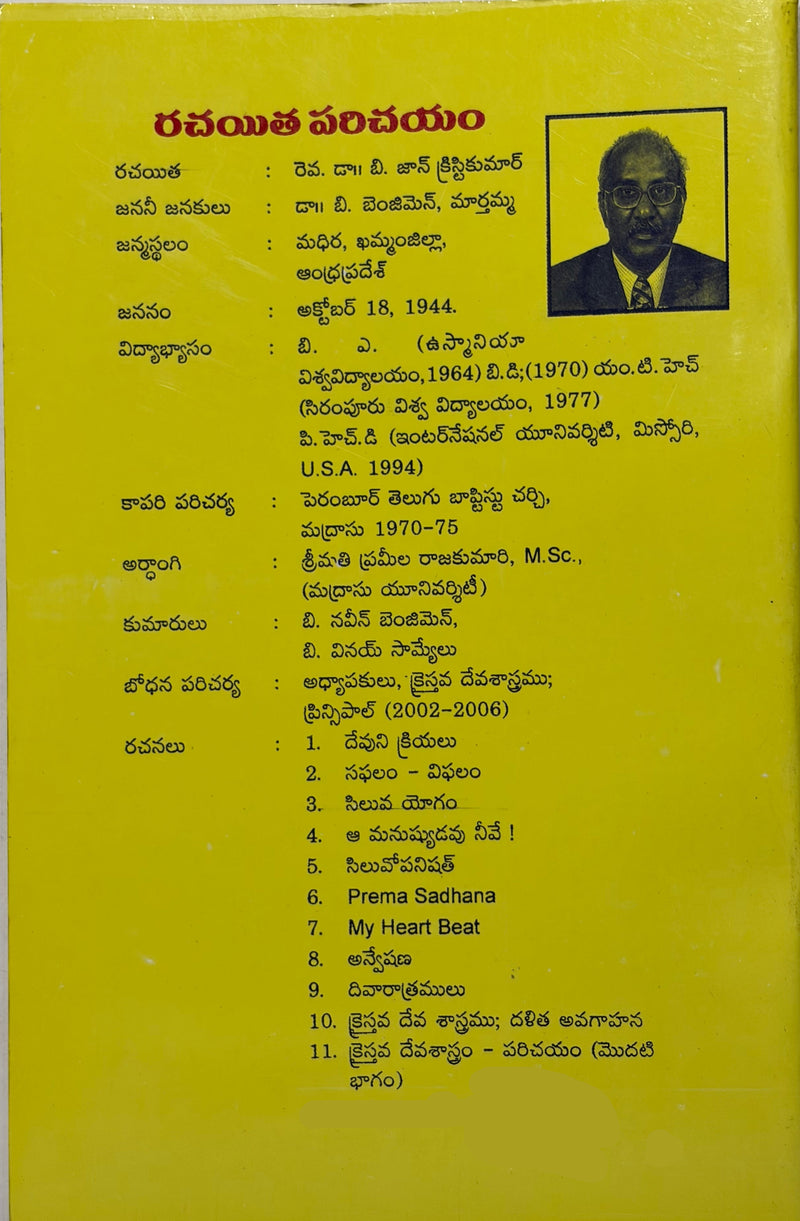 రచయిత పరిచయం
రచయిత : రెవ. డా॥ బి. జాన్ క్రిస్టికుమార్
జననీ జనకులు : డా॥ బి. బెంజిమెన్, మార్తమ్మ
జన్మస్థలం : మధిర, ఖమ్మంజిల్లా,
ఆంధ్రప్రదేశ్
జననం : అక్టోబర్ 18, 1944.
విద్యాభ్యాసం : బి. ఎ. (ఉస్మానియా
విశ్వవిద్యాలయం,1964) బి.డి;(1970) యం.టి.హెచ్
(సిరంపూరు విశ్వ విద్యాలయం, 1977)
పి.హెచ్.డి (ఇంటర్‌నేషనల్ యూనివర్శిటి, మిస్సోరి,
U.S.A. 1994)
కాపరి పరిచర్య : పెరంబూర్ తెలుగు బాప్టిస్టు చర్చి,
మద్రాసు 1970-75
అర్ధాంగి : శ్రీమతి ప్రమీల రాజకుమారి, M.Sc.,
(మద్రాసు యూనివర్శిటీ)
కుమారులు : బి. నవీన్ బెంజిమెన్,
బి. వినయ్ సామ్యేలు
బోధన పరిచర్య : అధ్యాపకులు, క్రైస్తవ దేవశాస్త్రము;
ప్రిన్సిపాల్ (2002-2006)
రచనలు : 1. దేవుని క్రియలు
2. సఫలం - విఫలం
3. సిలువ యోగం
4. ఆ మనుష్యుడవు నీవే !
5. సిలువోపనిషత్
6. Prema Sadhana
7. My Heart Beat
8. అన్వేషణ
9. దివారాత్రములు
10. క్రైస్తవ దేవ శాస్త్రము; దళిత అవగాహన
11. క్రైస్తవ దేవశాస్త్రం - పరిచయం (మొదటి
భాగం)